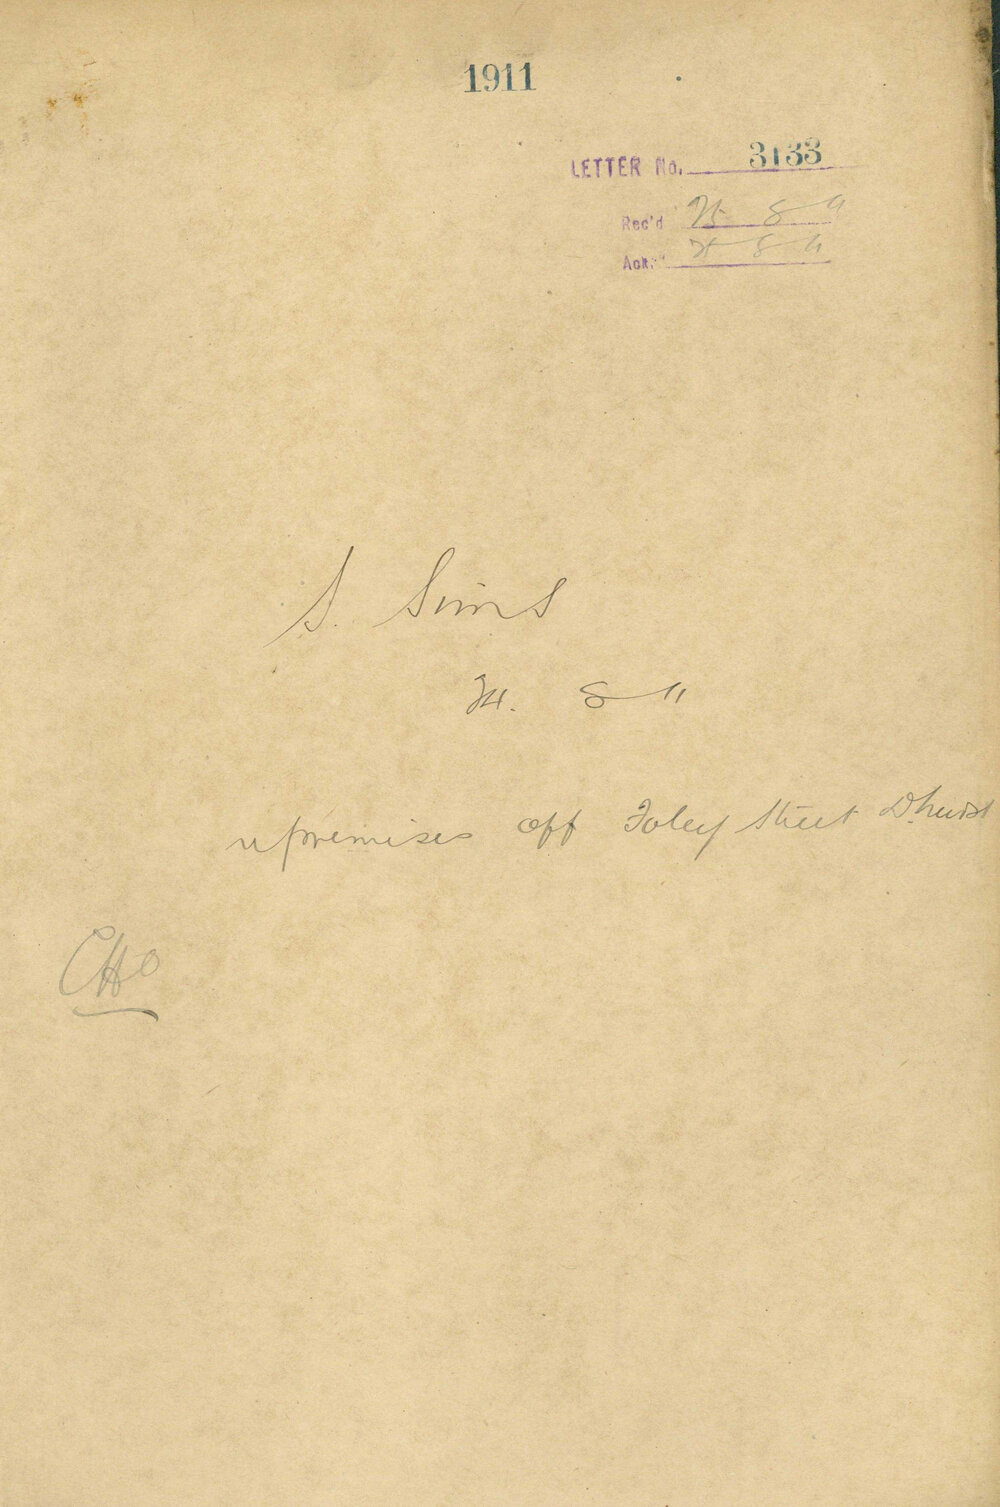 1911
LETTER No. 3133
Rec'd 25 8 11
Ack. " 25 8 11
S. Sims
24. 8 11
re premises off Foley Street D.hurst
CHO